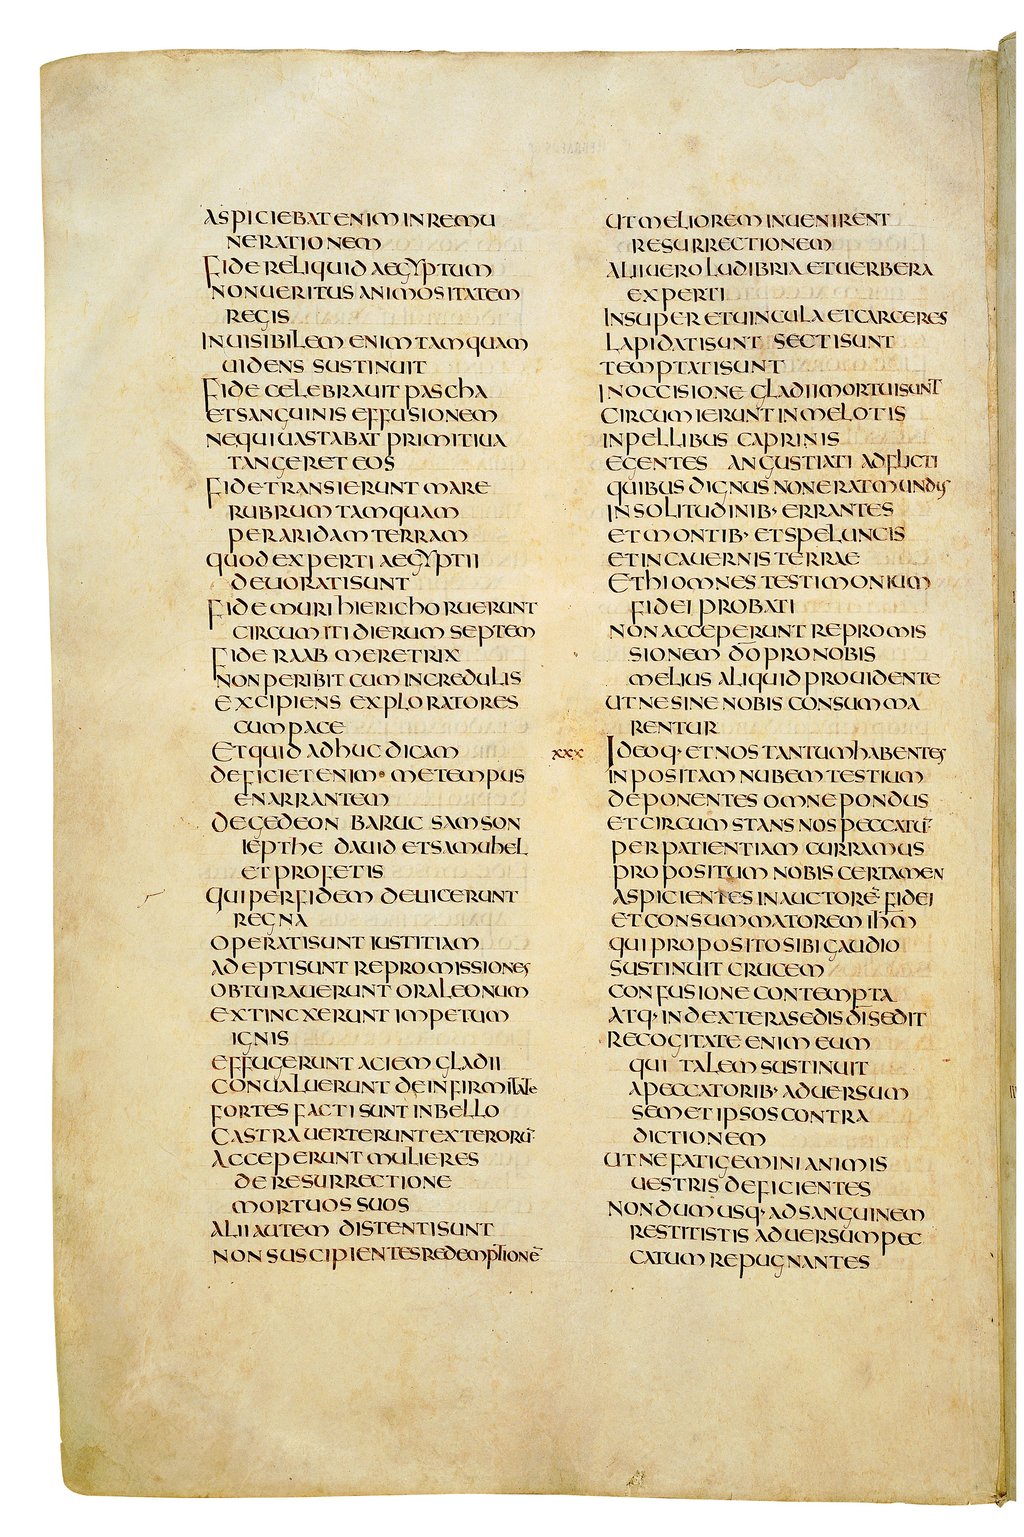 ASPICIEBAT ENIM IN REMU
NERATIONEM
FIDE RELIQUID AEGYPTUM
NON UERITUS ANIMOSITATEM
REGIS
INUISIBILEM ENIM TAMQUAM
UIDENS SUSTINUIT
FIDE CELEBRAUIT PASCHA
ET SANGUINIS EFFUSIONEM
NE QUI UASTABAT PRIMITIUA
TANGERET EOS
FIDE TRANSIERUNT MARE
RUBRUM TAMQUAM
PER ARIDAM TERRAM
QUOD EXPERTI AEGYPTII
DEUORATI SUNT
FIDE MURI HIERICHO RUERUNT
CIRCUMITI DIERUM SEPTEM
FIDE RAAB MERETRIX
NON PERIBIT CUM INCREDULIS
EXCIPIENS EXPLORATORES
CUM PACE
ET QUID ADHUC DICAM
DEFICIET ENIM ME TEMPUS
ENARRANTEM
DE GEDEON BARUC SAMSON
IEPTHE DAUID ET SAMUHEL
ET PROFETIS
QUI PER FIDEM DEUICERUNT
REGNA
OPERATI SUNT IUSTITIAM
ADEPTI SUNT REPROMISSIONES
OBTURAUERUNT ORA LEONUM
EXTINCXERUNT IMPETUM
IGNIS
EFFUGERUNT ACIEM GLADII
CONUALUERUNT DE INFIRMITATE
FORTES FACTI SUNT IN BELLO
CASTRA UERTERUNT EXTERORŪ
ACCEPERUNT MULIERES
DE RESURRECTIONE
MORTUOS SUOS
ALII AUTEM DISTENTI SUNT
NON SUSCIPIENTES REDEMPTIONĒ
UT MELIOREM INUENIRENT
RESURRECTIONEM
ALII UERO LUDIBRIA ET UERBERA
EXPERTI
INSUPER ET UINCULA ET CARCERES
LAPIDATI SUNT SECTI SUNT
TEMPTATI SUNT
IN OCCISIONE GLADII MORTUI SUNT
CIRCUMIERUNT IN MELOTIS
IN PELLIBUS CAPRINIS
EGENTES ANGUSTIATI ADFLICTI
QUIBUS DIGNUS NON ERAT MUNDUS
IN SOLITUDINIB· ERRANTES
ET MONTIB· ET SPELUNCIS
ET IN CAUERNIS TERRAE
ET HI OMNES TESTIMONIUM
FIDEI PROBATI
NON ACCEPERUNT REPROMIS
SIONEM D̄O PRO NOBIS
MELIUS ALIQUID PROUIDENTE
UT NE SINE NOBIS CONSUMMA
RENTUR
XXX IDEOQ· ET NOS TANTUM HABENTES
INPOSITAM NUBEM TESTIUM
DEPONENTES OMNE PONDUS
ET CIRCUMSTANS NOS PECCATŪ
PER PATIENTIAM CURRAMUS
PROPOSITUM NOBIS CERTAMEN
ASPICIENTES IN AUCTORĒ FIDEI
ET CONSUMMATOREM IH̄M
QUI PROPOSITO SIBI GAUDIO
SUSTINUIT CRUCEM
CONFUSIONE CONTEMPTA
ATQ· IN DEXTERA SEDIS D̄I SEDIT
RECOGITATE ENIM EUM
QUI TALEM SUSTINUIT
A PECCATORIB· ADUERSUM
SEMET IPSOS CONTRA
DICTIONEM
UT NE FATIGEMINI ANIMIS
UESTRIS DEFICIENTES
NONDUM USQ· AD SANGUINEM
RESTITISTIS ADUERSUM PEC
CATUM REPUGNANTES